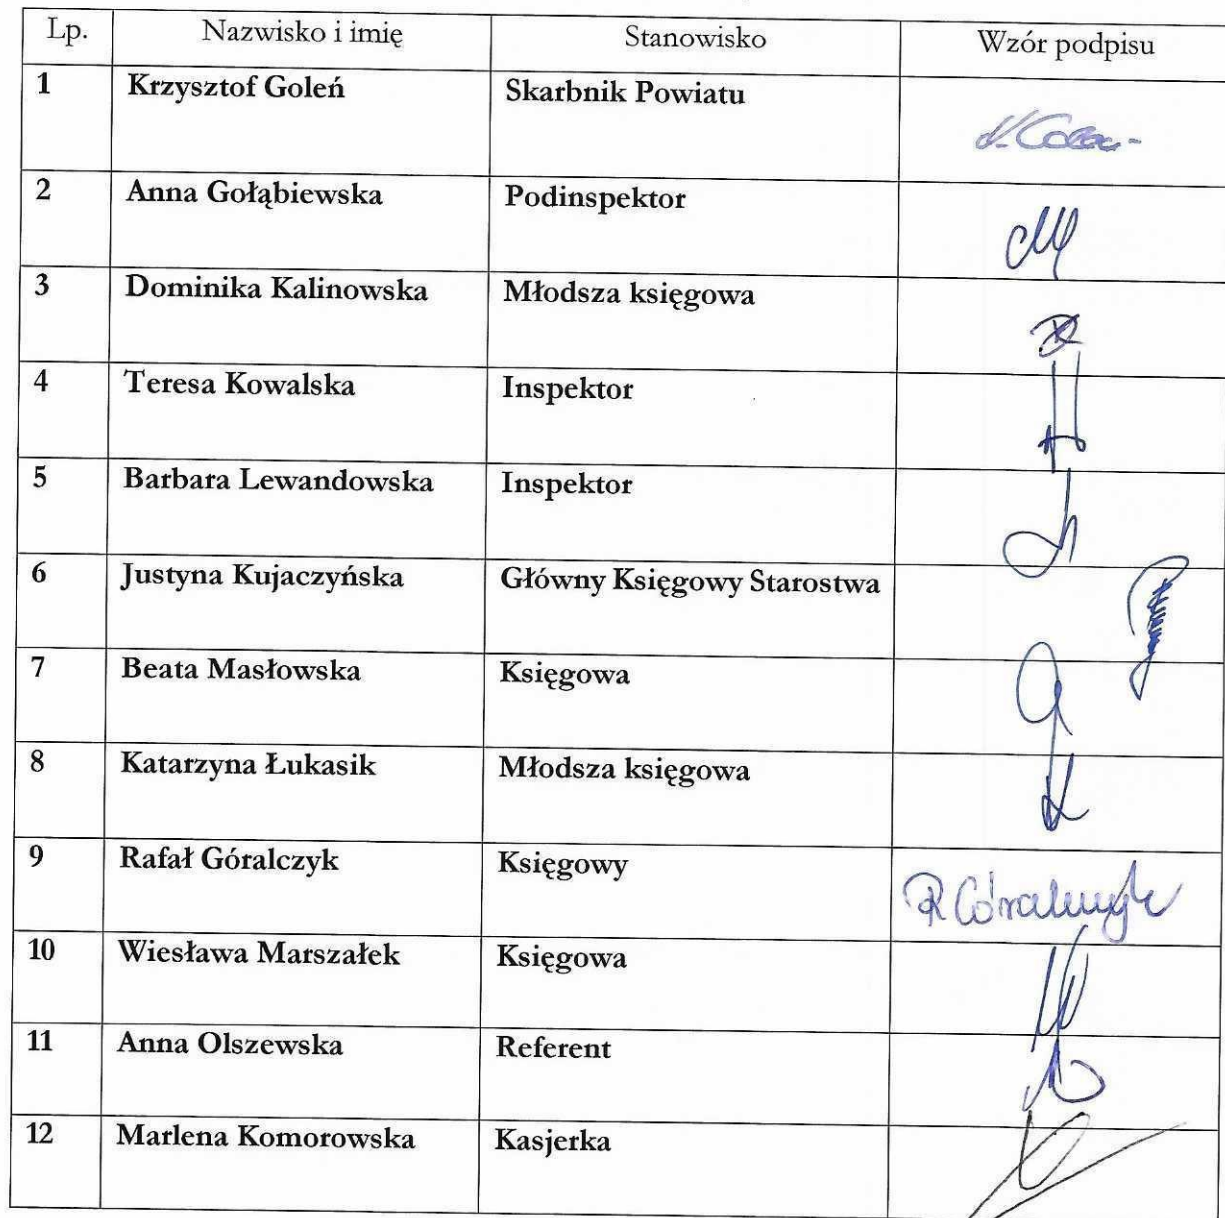 Lp. Nazwisko i imię Stanowisko Wzór podpisu
1 Krzysztof Goleń Skarbnik Powiatu
2 Anna Gołąbiewska Podinspektor
3 Dominika Kalinowska Młodsza księgowa
4 Teresa Kowalska Inspektor
5 Barbara Lewandowska Inspektor
6 Justyna Kujaczyńska Główny Księgowy Starostwa
7 Beata Masłowska Księgowa
8 Katarzyna Łukasik Młodsza księgowa
9 Rafał Góralczyk Księgowy R Góralczyk
10 Wiesława Marszałek Księgowa
11 Anna Olszewska Referent
12 Marlena Komorowska Kasjerka